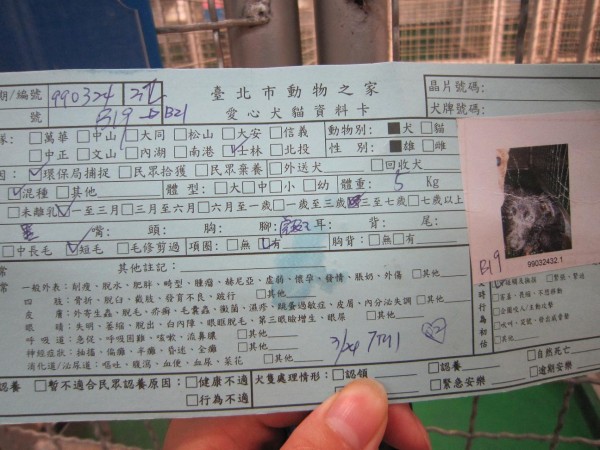 期/編號 990324
臺北市動物之家
晶片號碼:
號 B19→B21
愛心犬貓資料卡
犬牌號碼:
隊: □萬華 □中山 □大同 □松山 □大安 □信義 動物別: ■犬 □貓
□中正 □文山 □內湖 □南港 ☑士林 □北投 性 別: ■雄 □雌
因: ☑環保局捕捉 □民眾拾獲 □民眾棄養 □外送犬 □回收犬
☑混種 □其他 體 型: □大 □中 □小 □幼 體重: 5 Kg
□未離乳 ☑一至三月 □三月至六月 □六月至一歲 □一歲至三歲 三至七歲 □七歲以上
黑 嘴: 頭: 胸: 腳: 耳: 背: 尾:
□中長毛 ☑短毛 □毛修剪過 項圈: □無 ☑有 胸背: □無 □有
B19
99032432.1
常 其他註記:
常 一般外表: 削瘦、脫水、肥胖、畸型、腫瘤、赫尼亞、虛弱、懷孕、發情、脹奶、外傷 □其他
四 肢: 骨折、脫臼、截肢、發育不良、跛行 □其他
皮 膚: 外寄生蟲、脫毛、疥癬、毛囊蟲、黴菌、濕疹、跳蚤過敏症、皮屑、內分泌失調 □其他
眼 睛: 失明、萎縮、脫出、白內障、眼瞼脫毛、第三眼瞼增生、眼屎 □其他
呼 吸 道: 急促、呼吸困難、咳嗽、流鼻膿 □其他
神經症狀: 抽搐、偏癱、半癱、昏迷、全癱 □其他
消化道/泌尿道: 嘔吐、腹瀉、血便、血尿、菜花 □其他
3/24
認養 □暫不適合民眾認養原因: □健康不適 犬隻處理情形: □認領 □認養 □自然死亡
□行為不適 □緊急安樂 □逾期安樂